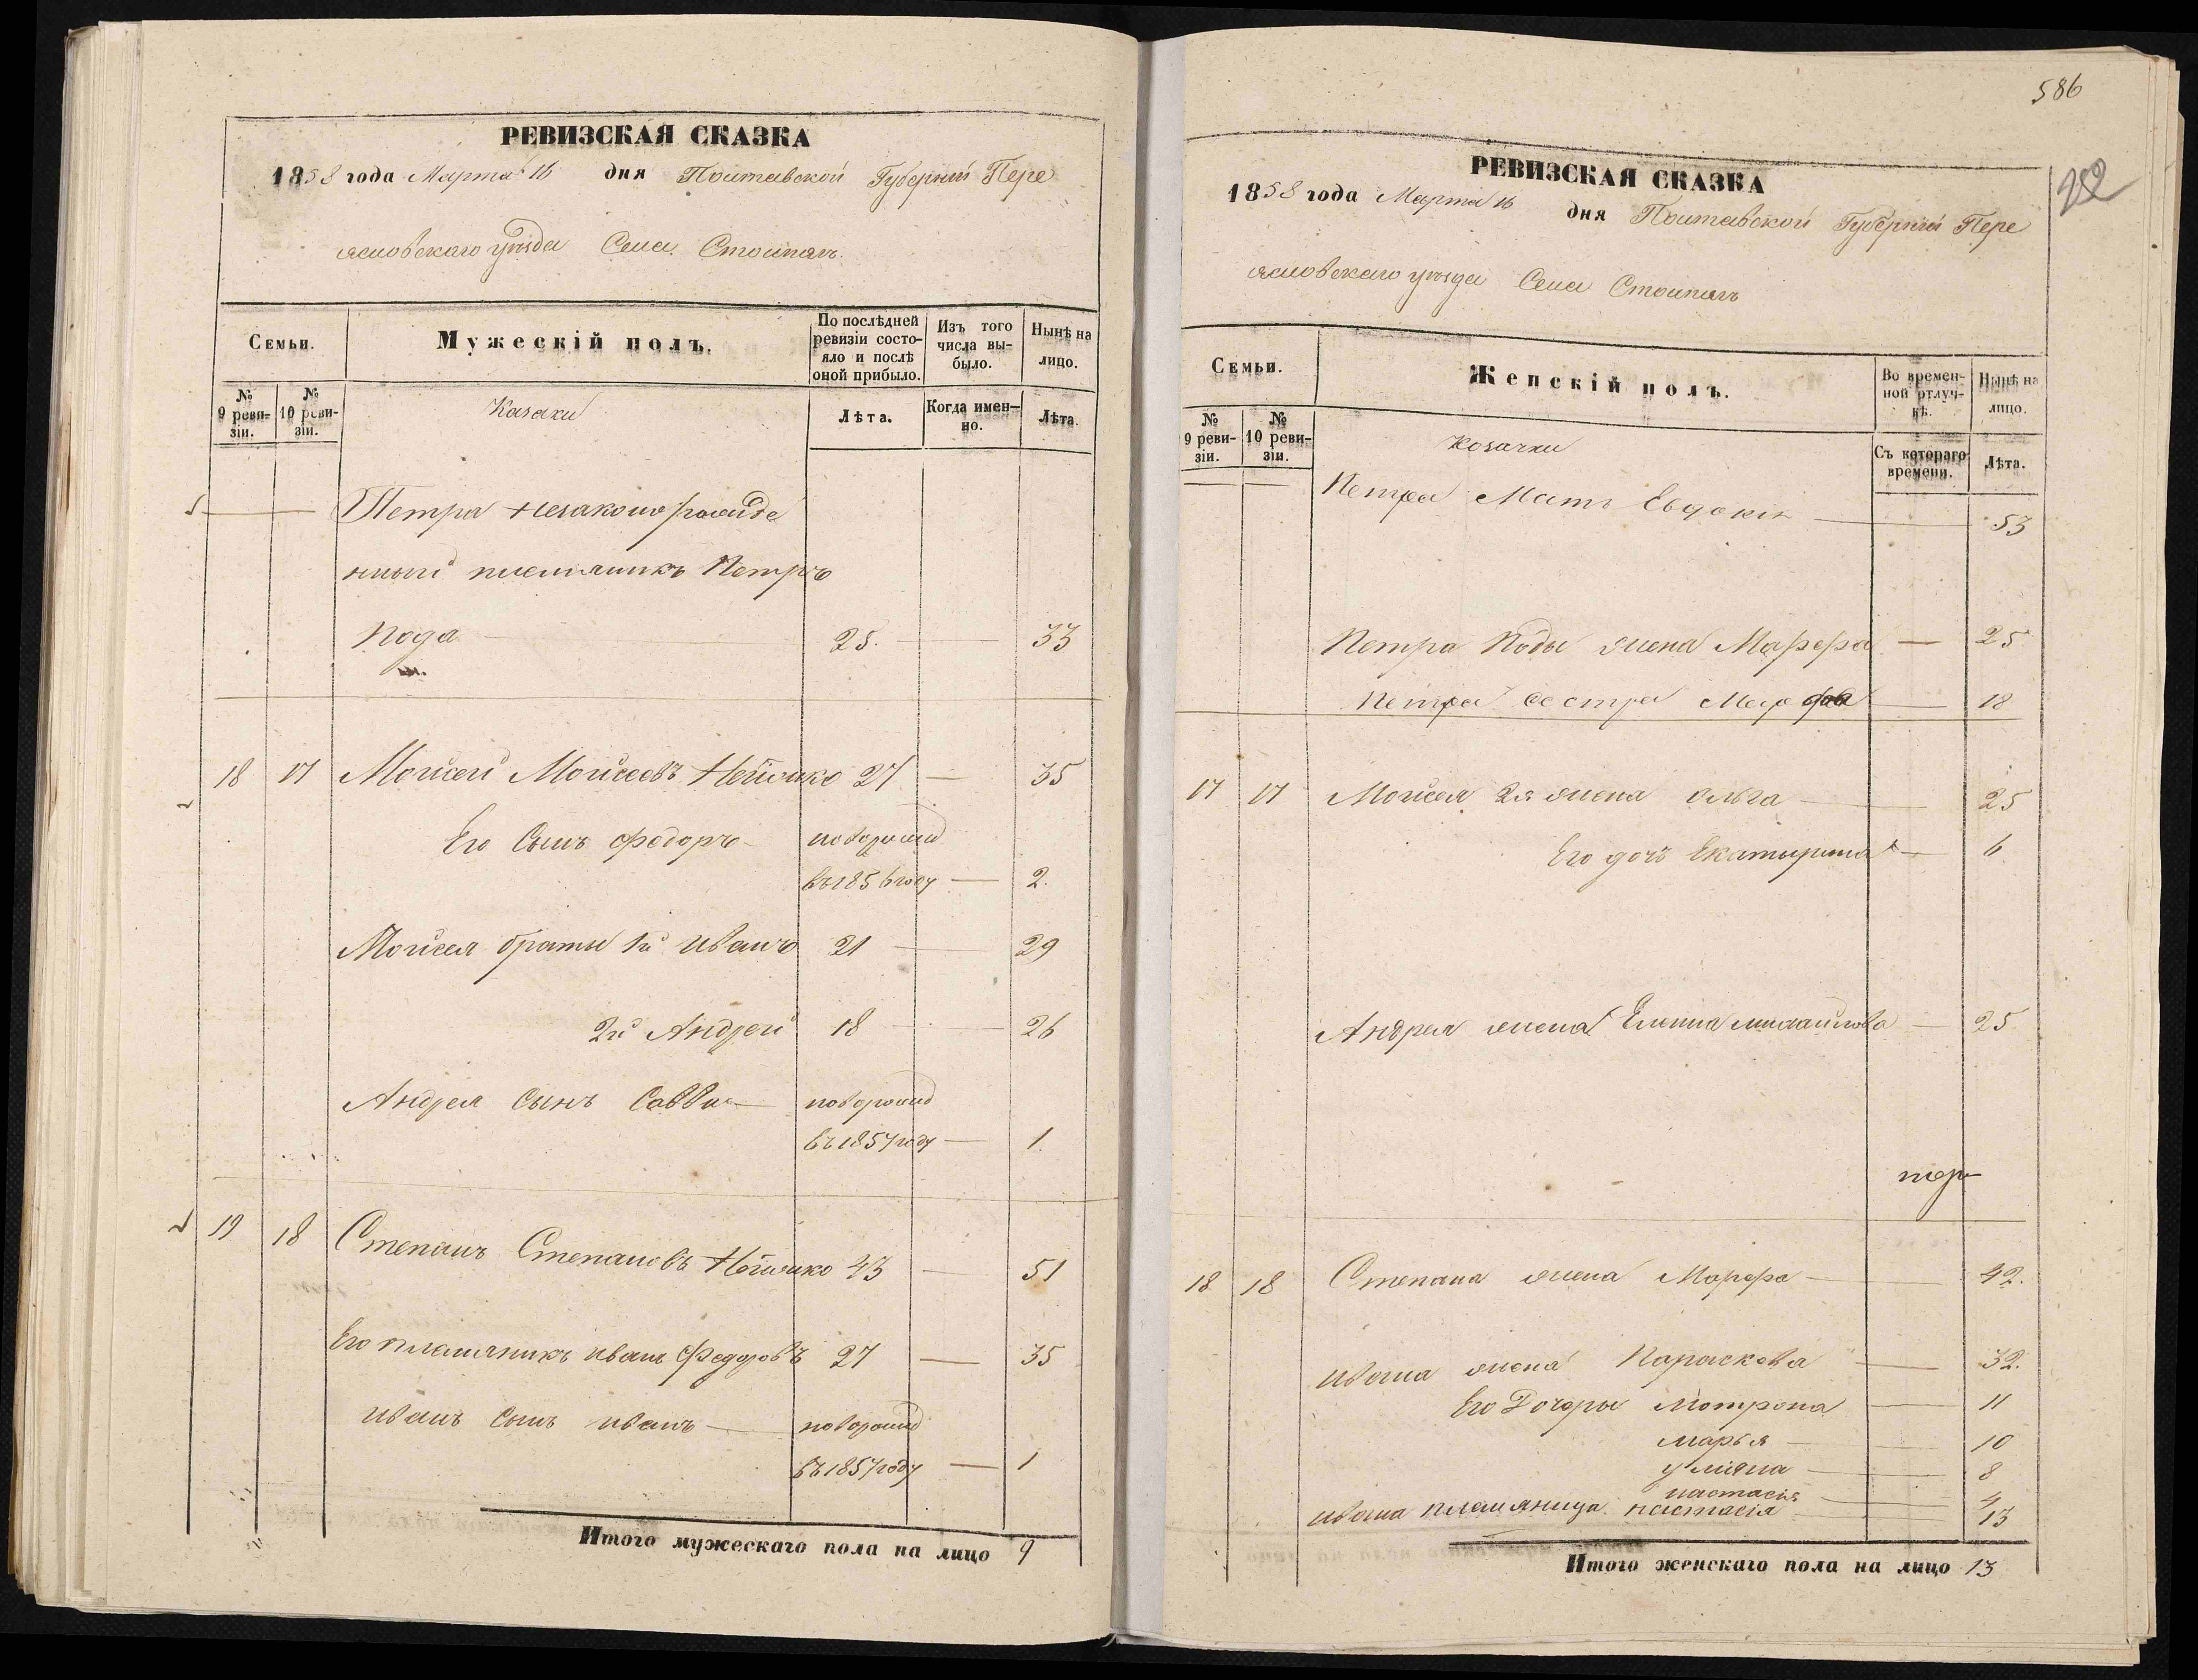 РЕВИЗСКАЯ СКАЗКА
1858 года Марта 16 дня Полтавской Губерніи Пере
яславскаго уѣзда Села Столпягъ
Семьи.
Мужескій полъ.
По послѣдней ревизіи состояло и послѣ оной прибыло.
Изъ того числа выбыло.
Нынѣ на лицо.
№ 9 ревизіи.
№ 10 ревизіи.
Казаки
Лѣта.
Когда именно.
Лѣта.
Петра незаконорожде
нный племянникъ Петръ
Кода 25. 33
18 17 Мойсей Мойсеовъ 27 35
Его Сынъ Федоръ новорожд
въ 1856 году 2.
Мойсея браты 1й Иванъ 21 29
2й Андрей 18 26
Андрея Сынъ Савва новорожд
въ 1857 году 1.
19 18 Степанъ Степановъ 43 51
Его племяникъ иванъ Федоровъ 27 35
иванъ Сынъ иванъ новорожд
въ 1857 году 1
Итого мужескаго пола на лицо 9
586
РЕВИЗСКАЯ СКАЗКА
1858 года Марта 16 дня Полтавской Губерніи Пере
яславскаго уѣзда Села Столпягъ
Семьи.
Женскій полъ.
Во временной отлучкѣ.
Нынѣ на лицо.
№ 9 ревизіи.
№ 10 ревизіи.
Козачки
Съ котораго времени.
Лѣта.
Петра Мать Евдокія 53
Петра Коды жена Марфа 25
Петра сестра 18
17 17 Мойсея 2я жена Ольга 25
Его дочь Екатырина 6
Андрея жена Елена михайлова 25
18 18 Степана жена Марфа 42.
ивана жена Параскова 32.
Его Дочеры Мотрона 11
марья 10
улияна 8
настасія 4
ивана племяница настасія 13
Итого женскаго пола на лицо 13